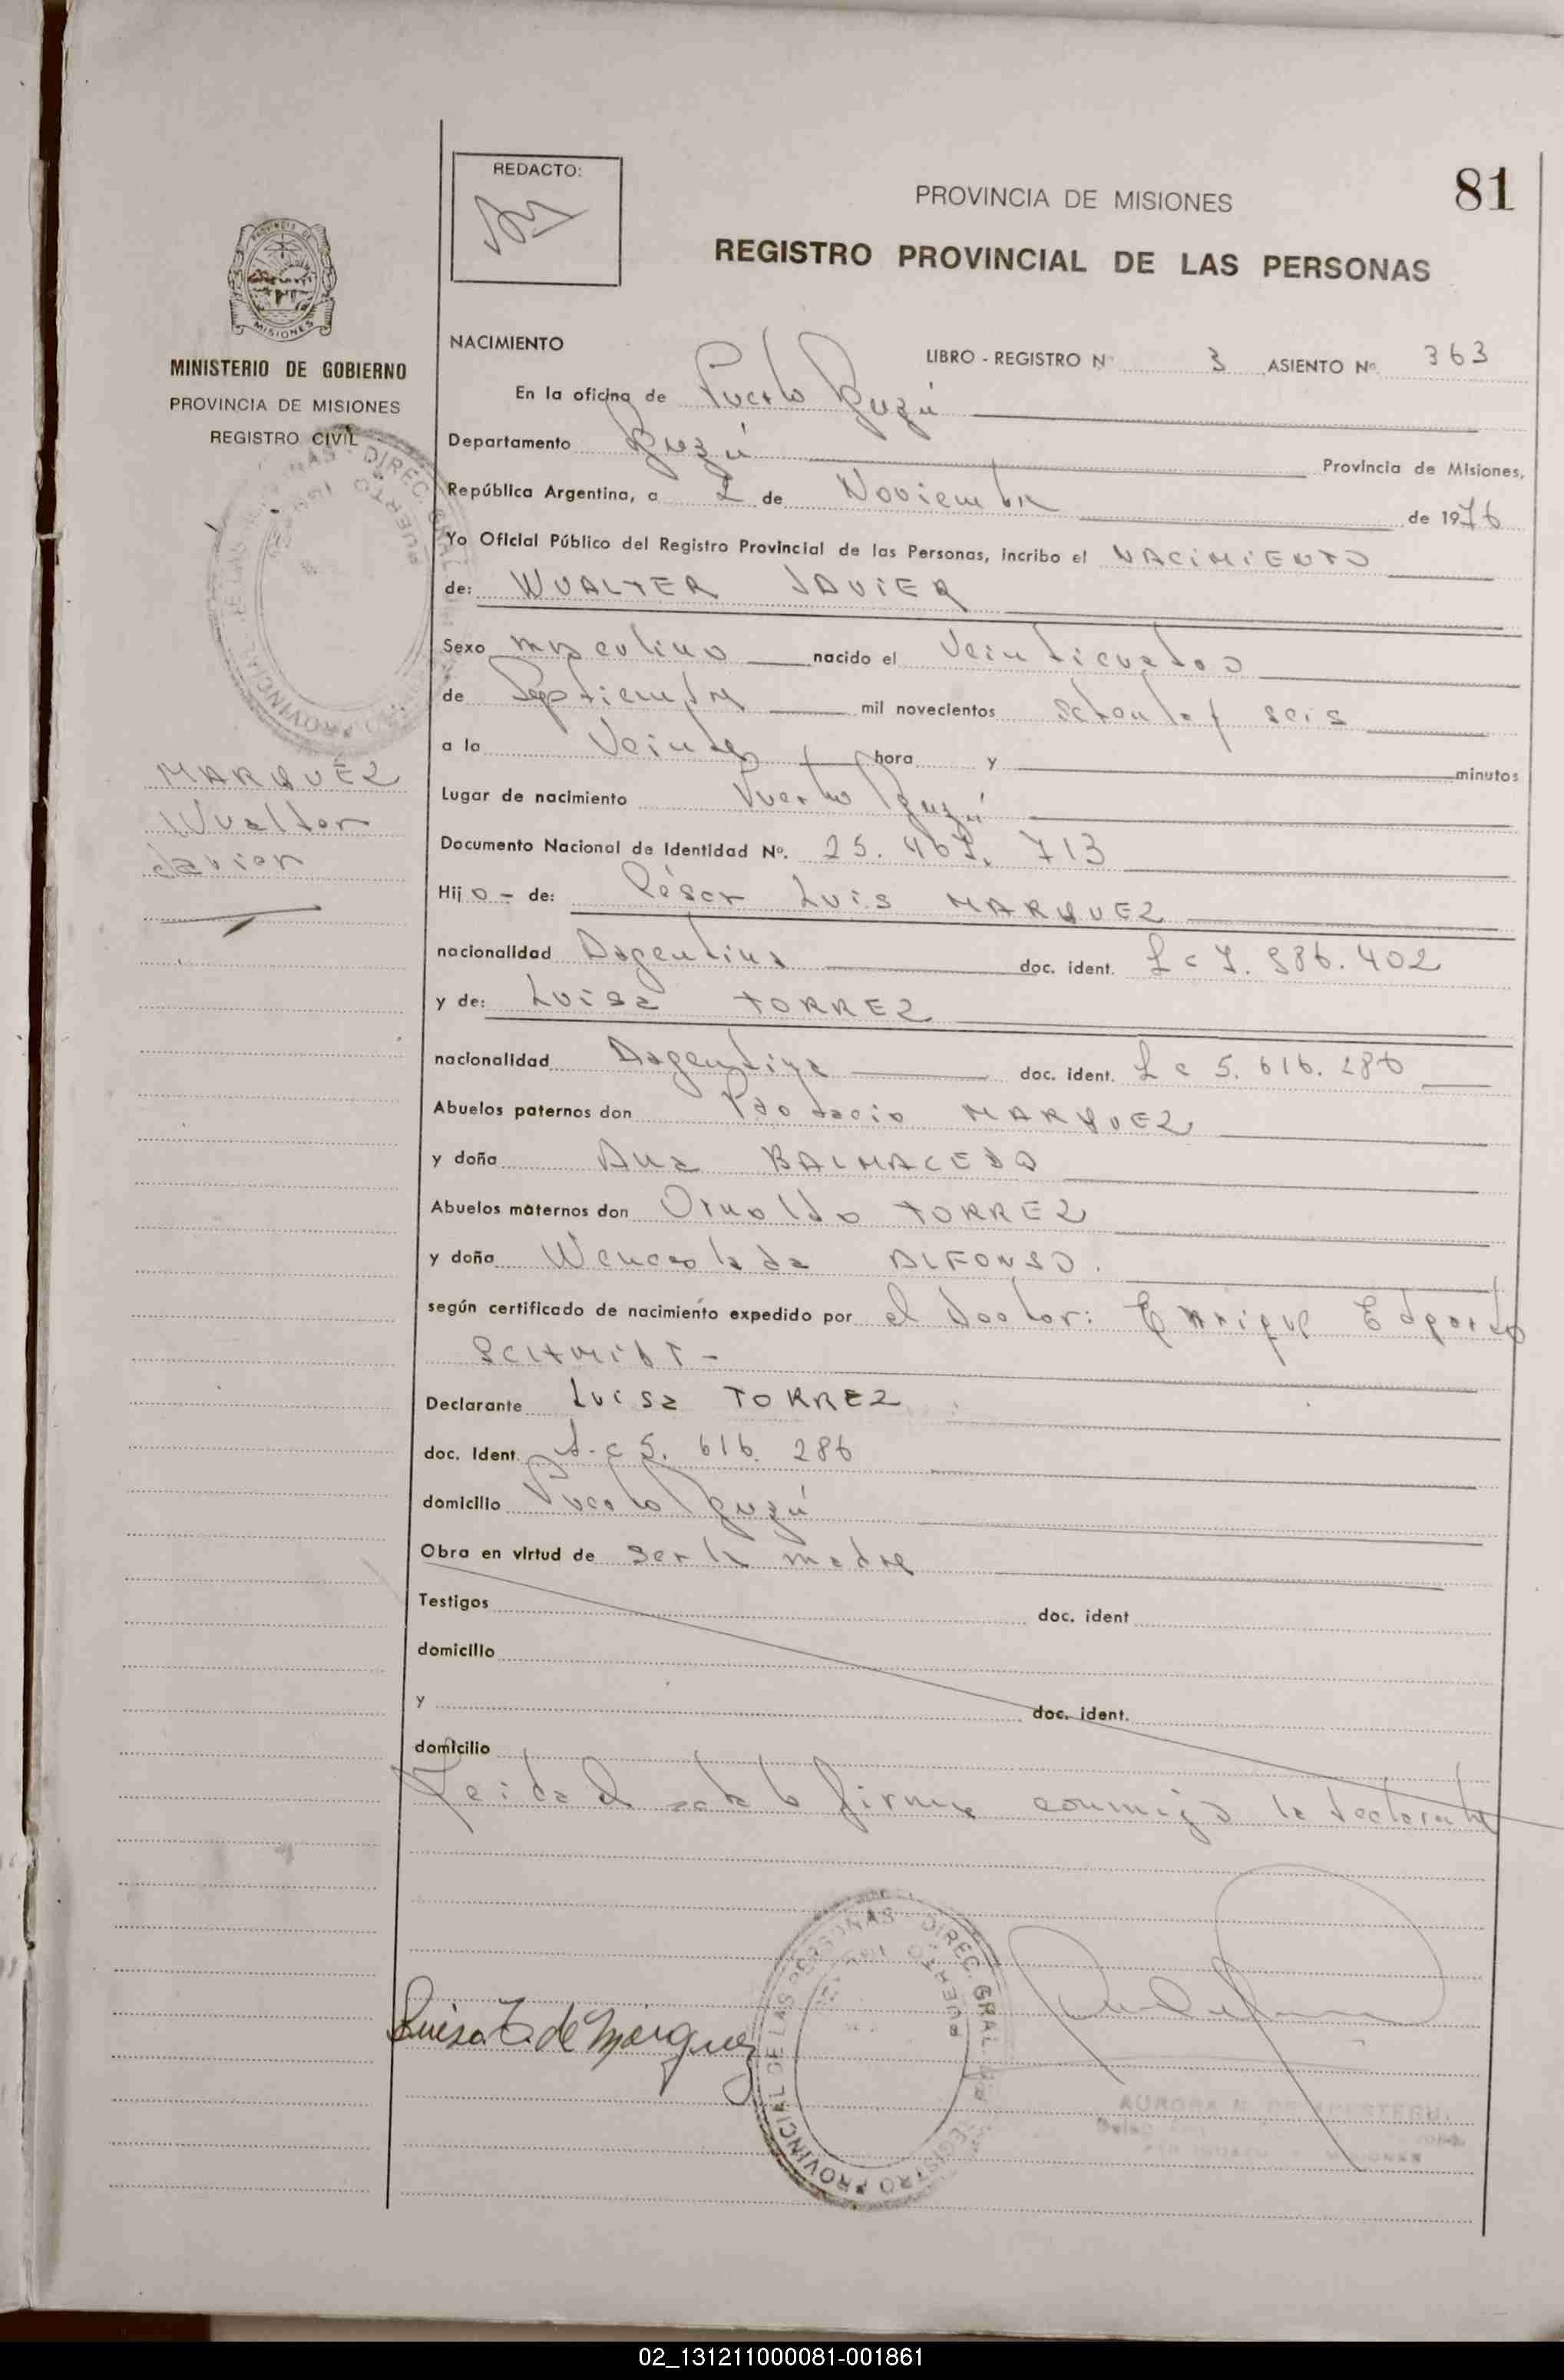 81
REDACTO:
PROVINCIA DE MISIONES
REGISTRO PROVINCIAL DE LAS PERSONAS
PROVINCIA DE
MISIONES
MINISTERIO DE GOBIERNO
PROVINCIA DE MISIONES
REGISTRO CIVIL
NACIMIENTO
LIBRO - REGISTRO Nº 3 ASIENTO Nº 363
En la oficina de Puerto Iguazú
Departamento Iguazú Provincia de Misiones,
República Argentina, a 2 de Noviembre de 1976
Yo Oficial Público del Registro Provincial de las Personas, incribo el NACIMIENTO
de: WUALTER JAVIER
Sexo masculino nacido el Veinticuatro
de Septiembre mil novecientos setenta y seis
a la Veinte hora y minutos
MARQUÉZ
Wualter
Javier
Lugar de nacimiento Puerto Iguazú
Documento Nacional de Identidad Nº. 25.467.713
Hijo - de: César Luis MARQUEZ
nacionalidad Argentina doc. ident. 402
y de: Luisa TORREZ
nacionalidad Argentina doc. ident. L c 5.616.286
Abuelos paternos don MARQUEZ
y doña Ana BALMACEDA
Abuelos maternos don TORREZ
y doña Wenceslada ALFONSO.
según certificado de nacimiento expedido por el Doctor: Enrique Edgardo
SCHMIDT -
Declarante Luisa TORREZ
doc. Ident. L.c 5.616.286
domicilio Puerto Iguazú
Obra en virtud de ser la madre
Testigos doc. ident
domicilio
y doc. ident.
domicilio
Leida el acta la firma conmigo la declarante
Luisa T. de Marquez
REGISTRO PROVINCIAL DE LAS PERSONAS - DIREC. GRAL.
PUERTO
AURORA
02_131211000081-001861